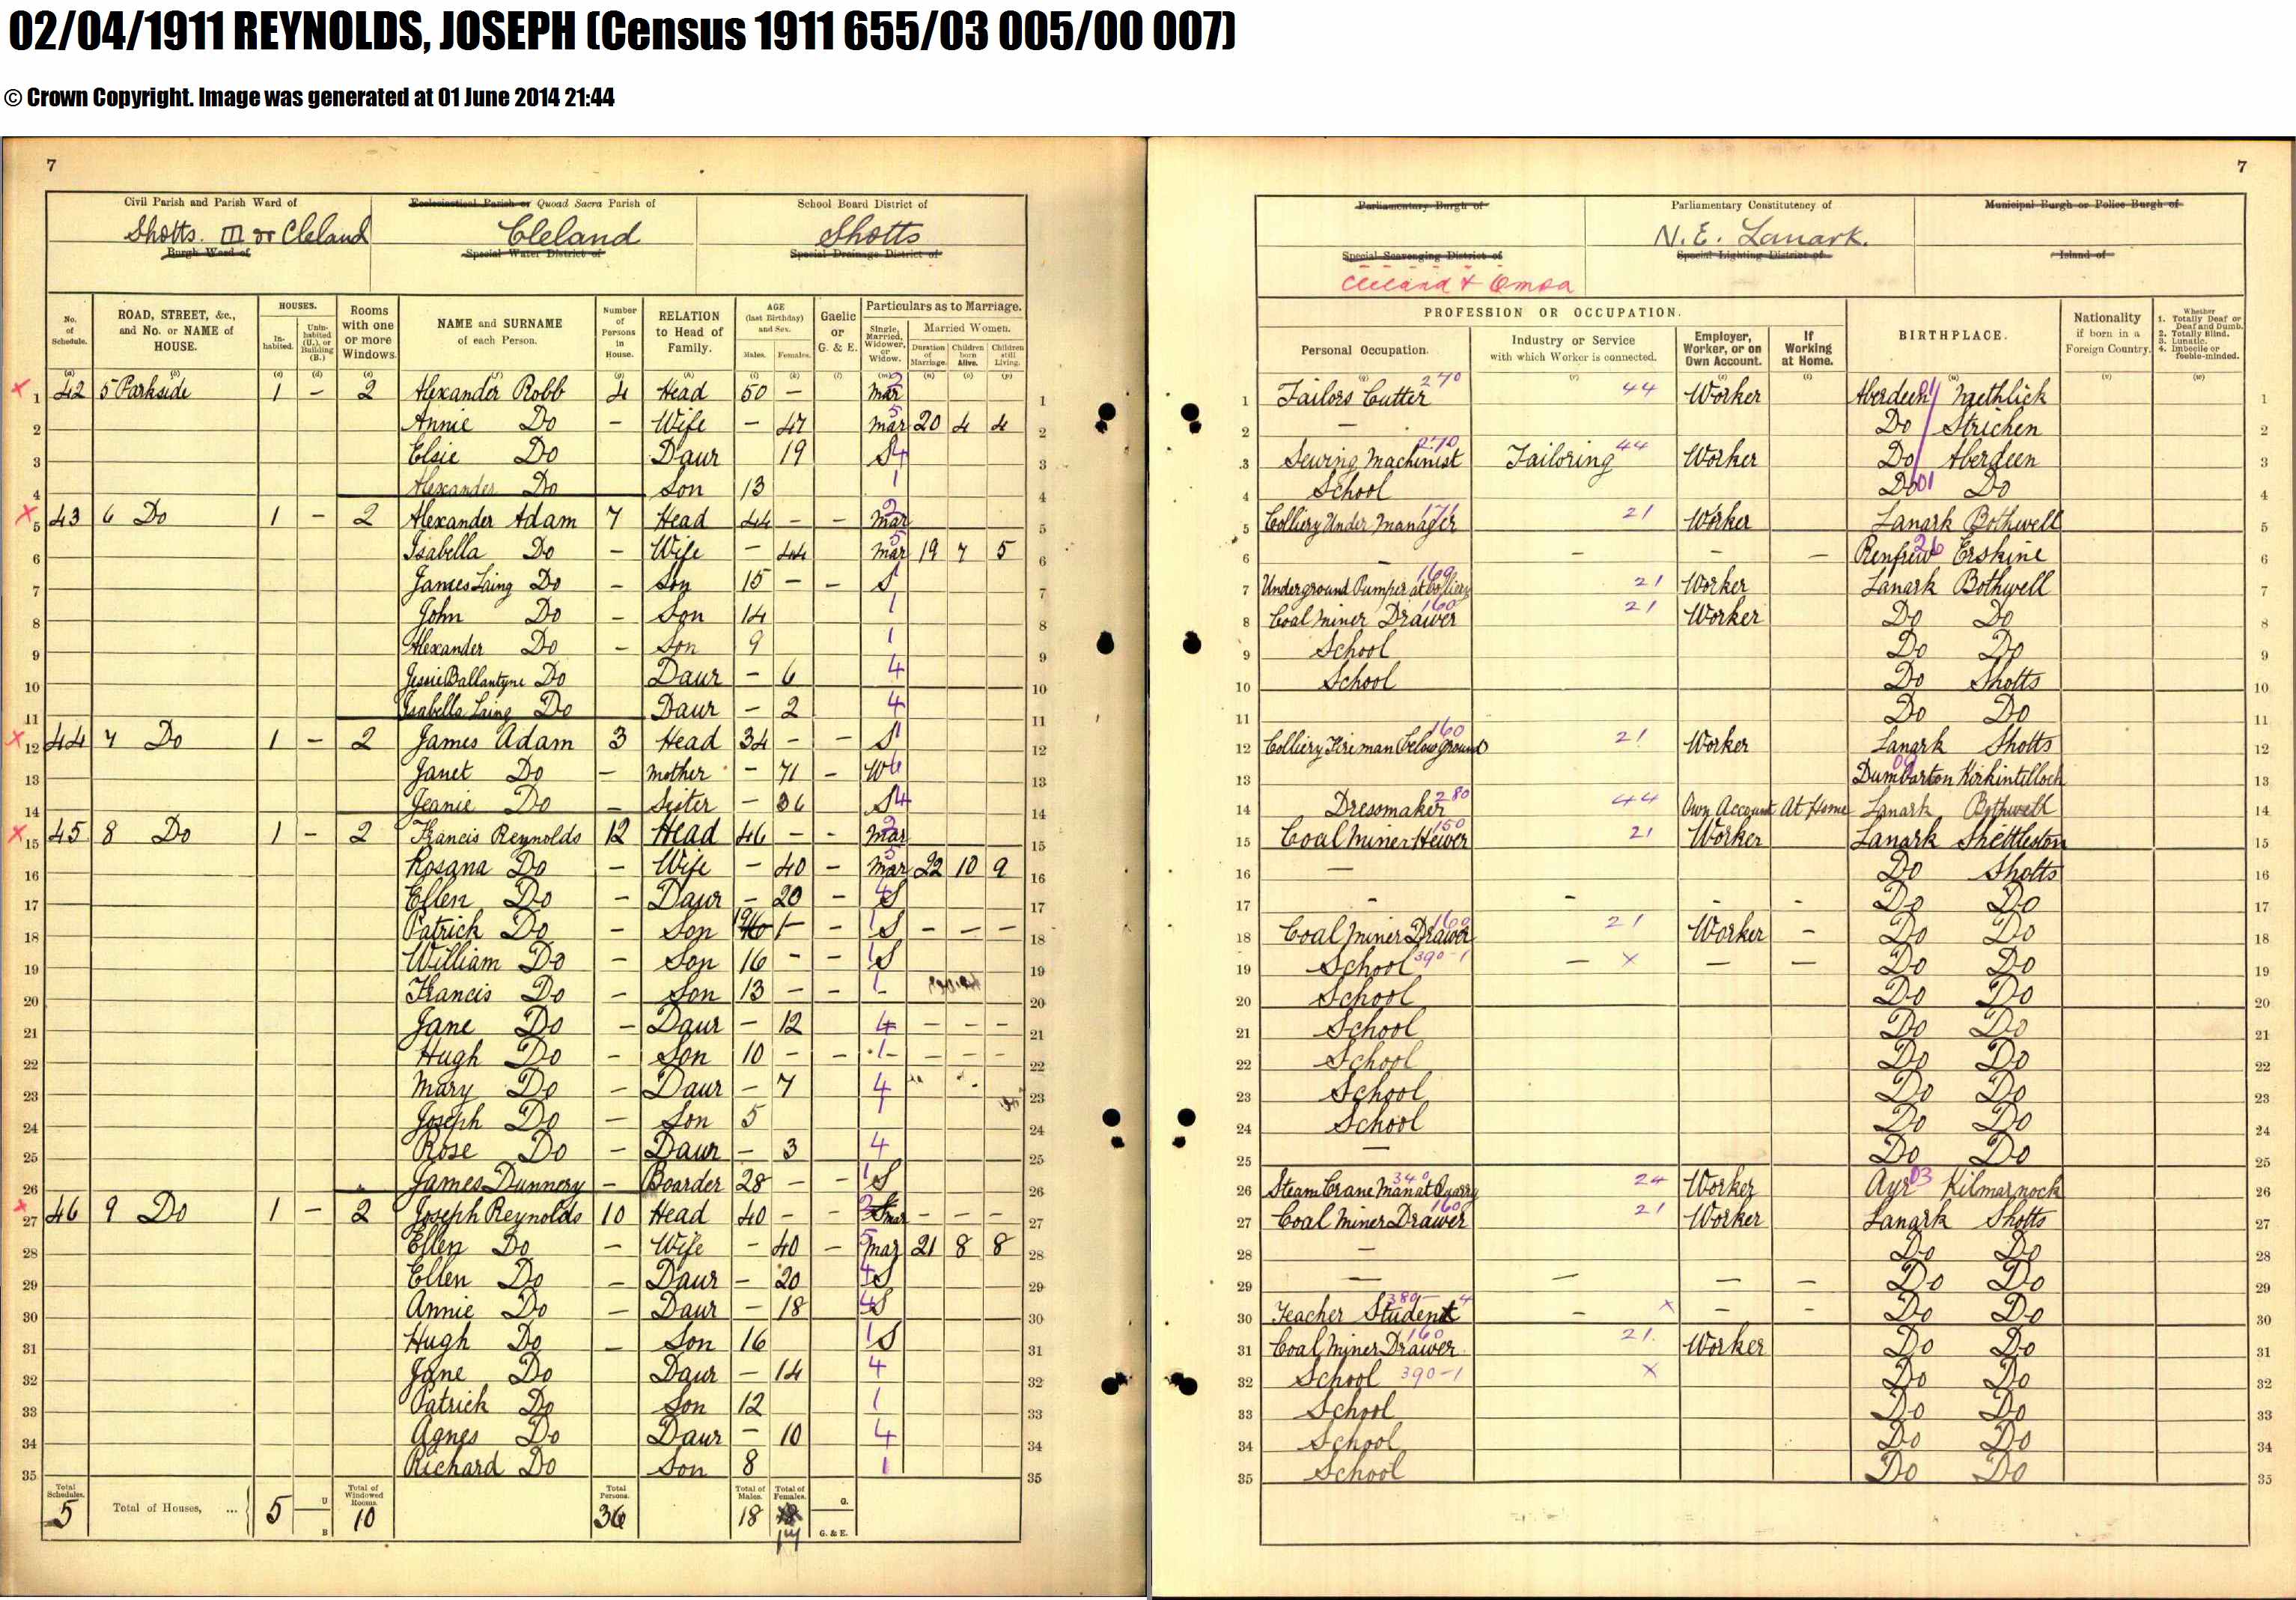 02/04/1911 REYNOLDS, JOSEPH (Census 1911 655/03 005/00 007)
© Crown Copyright. Image was generated at 01 June 2014 21:44
7
7
Civil Parish and Parish Ward of
Shotts. III or Cleland
Burgh Ward of
Ecclesiastical Parish or Quoad Sacra Parish of
Cleland
Special Water District of
School Board District of
Shotts
Special Drainage District of
Parliamentary Burgh of
Special Scavenging District of
Cleland & Omoa
Parliamentary Constitutency of
N. E. Lanark.
Special Lighting District of
Municipal Burgh or Police Burgh of
Island of
No. of Schedule.
ROAD, STREET, &c., and No. or NAME of HOUSE.
HOUSES.
In-habited.
Unin-habited (U.), or Building (B.)
Rooms with one or more Windows.
NAME and SURNAME of each Person.
Number of Persons in House.
RELATION to Head of Family.
AGE (last Birthday) and Sex.
Males. Females.
Gaelic or G. & E.
Particulars as to Marriage.
Single, Married, Widower, or Widow.
Married Women.
Duration of Marriage. Children born Alive. Children still Living.
PROFESSION OR OCCUPATION.
Personal Occupation.
Industry or Service with which Worker is connected.
Employer, Worker, or on Own Account.
If Working at Home.
BIRTHPLACE.
Nationality if born in a Foreign Country.
Whether 1. Totally Deaf or Deaf and Dumb. 2. Totally Blind. 3. Lunatic. 4. Imbecile or feeble-minded.
1 42 5 Parkside 1 – 2 Alexander Robb 4 Head 50 – Mar 2 1 Tailors Cutter 270 44 Worker Aberdeen Methlick 1
2 Annie Do – Wife – 47 Mar 5 20 4 4 2 – Do Strichen 2
3 Elsie Do Daur 19 S 4 3 Sewing Machinist 270 Tailoring 44 Worker Do Aberdeen 3
4 Alexander Do Son 13 1 4 School Do 01 Do 4
5 43 6 Do 1 – 2 Alexander Adam 7 Head 44 – – Mar 2 5 Colliery Under Manager 171 21 Worker Lanark Bothwell 5
6 Isabella Do – Wife – 44 Mar 5 19 7 5 6 – – – Renfrew 26 Erskine 6
7 James Laing Do – Son 15 – – S 1 7 Underground Pumper at Colliery 160 21 Worker Lanark Bothwell 7
8 John Do – Son 14 1 8 Coal Miner Drawer 160 21 Worker Do Do 8
9 Alexander Do – Son 9 1 9 School Do Do 9
10 Jessie Ballantyne Do Daur – 6 4 10 School Do Shotts 10
11 Isabella Laing Do Daur – 2 4 11 Do Do 11
12 44 7 Do 1 – 2 James Adam 3 Head 34 – – S 1 12 Colliery Fireman (below ground) 160 21 Worker Lanark Shotts 12
13 Janet Do – Mother – 71 – W 6 13 Dumbarton Kirkintilloch 13
14 Jeanie Do – Sister – 36 S 4 14 Dressmaker 280 44 Own Account At Home Lanark Bothwell 14
15 45 8 Do 1 – 2 Francis Reynolds 12 Head 46 – – Mar 2 15 Coal Miner Hewer 150 21 Worker Lanark Shettleston 15
16 Rosana Do – Wife – 40 – Mar 5 22 10 9 16 – Do Shotts 16
17 Ellen Do – Daur – 20 – 4 S 17 – – – – Do Do 17
18 Patrick Do – Son 19 – – 1 S – – – 18 Coal Miner Drawer 160 21 Worker – Do Do 18
19 William Do – Son 16 – – 1 S 19 School 390-1 – X – – Do Do 19
20 Francis Do – Son 13 – – 1 20 School Do Do 20
21 Jane Do – Daur – 12 4 – – – 21 School Do Do 21
22 Hugh Do – Son 10 – – 1 – – – 22 School Do Do 22
23 Mary Do – Daur – 7 4 23 School Do Do 23
24 Joseph Do – Son 5 1 24 School Do Do 24
25 Rose Do – Daur – 3 4 25 – Do Do 25
26 James Dunnery – Boarder 28 – – 1 S 26 Steam Crane Man at Quarry 340 24 Worker Ayr 03 Kilmarnock 26
27 46 9 Do 1 – 2 Joseph Reynolds 10 Head 40 – – 2 Mar – – – 27 Coal Miner Drawer 160 21 Worker Lanark Shotts 27
28 Ellen Do – Wife – 40 – Mar 5 21 8 8 28 – Do Do 28
29 Ellen Do – Daur – 20 4 S 29 – – – – Do Do 29
30 Annie Do – Daur – 18 4 S 30 Teacher Student 380-4 – X – – Do Do 30
31 Hugh Do – Son 16 1 S 31 Coal Miner Drawer 160 21. Worker Do Do 31
32 Jane Do Daur – 14 4 32 School 390-1 X Do Do 32
33 Patrick Do Son 12 1 33 School Do Do 33
34 Agnes Do Daur – 10 4 34 School Do Do 34
35 Richard Do Son 8 1 35 School Do Do 35
Total Schedules. 5
Total of Houses, ... 5 U B
Total of Windowed Rooms. 10
Total Persons. 36
Total of Males. 18
Total of Females. 17
G.
G. & E.